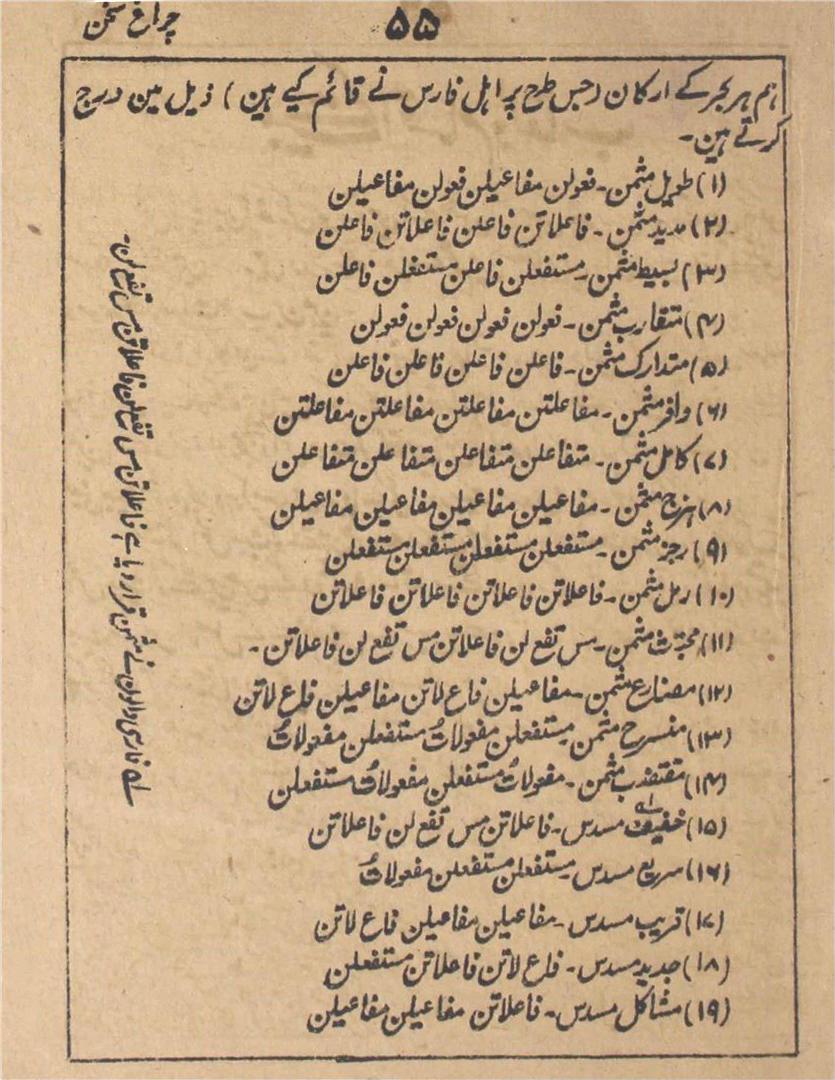 ۵۵
چراغ سخن
ہم ہر بحر کے ارکان (جس طرح پر اہل فارس نے قائم کیے ہین) ذیل مین درج
کرتے ہین۔
(۱) طویل مثمن۔ فعولن مفاعیلن فعولن مفاعیلن
(۲) مدید مثمن۔ فاعلاتن فاعلن فاعلاتن فاعلن
(۳) بسیط مثمن۔ مستفعلن فاعلن مستفعلن فاعلن
(۴) متقارب مثمن۔ فعولن فعولن فعولن فعولن
(۵) متدارک مثمن۔ فاعلن فاعلن فاعلن فاعلن
(۶) وافر مثمن۔ مفاعلتن مفاعلتن مفاعلتن مفاعلتن
(۷) کامل مثمن۔ متفاعلن متفاعلن متفاعلن متفاعلن
(۸) ہزج مثمن۔ مفاعیلن مفاعیلن مفاعیلن مفاعیلن
(۹) رجز مثمن۔ مستفعلن مستفعلن مستفعلن مستفعلن
(۱۰) رمل مثمن۔ فاعلاتن فاعلاتن فاعلاتن فاعلاتن
(۱۱) مجتث مثمن۔ مس تفع لن فاعلاتن مس تفع لن فاعلاتن۔
(۱۲) مضارع مثمن۔ مفاعیلن فاع لاتن مفاعیلن فاع لاتن
(۱۳) منسرح مثمن۔ مستفعلن مفعولاتُ مستفعلن مفعولاتُ
(۱۴) مقتضب مثمن۔ مفعولاتُ مستفعلن مفعولاتُ مستفعلن
(۱۵) خفیف لے مسدس۔ فاعلاتن مس تفع لن فاعلاتن
(۱۶) سریع مسدس۔ مستفعلن مستفعلن مفعولاتُ
(۱۷) قریب مسدس۔ مفاعیلن مفاعیلن فاع لاتن
(۱۸) جدید مسدس۔ فاع لاتن فاعلاتن مستفعلن
(۱۹) مشاکل مسدس۔ فاعلاتن مفاعیلن مفاعیلن
لے فارسی والون نے مثمن قرار دیا ہے فاعلاتن مس تفع لن فاعلاتن مس تفع لن۔